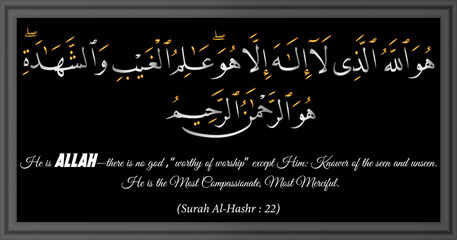 هُوَ ٱللَّهُ ٱلَّذِى لَآ إِلَـٰهَ إِلَّا هُوَ ۖ عَـٰلِمُ ٱلْغَيْبِ وَٱلشَّهَـٰدَةِ ۖ
هُوَ ٱلرَّحْمَـٰنُ ٱلرَّحِيمُ
He is ALLAH—there is no god ,"worthy of worship" except Him: Knower of the seen and unseen.
He is the Most Compassionate, Most Merciful.
(Surah Al-Hashr : 22)